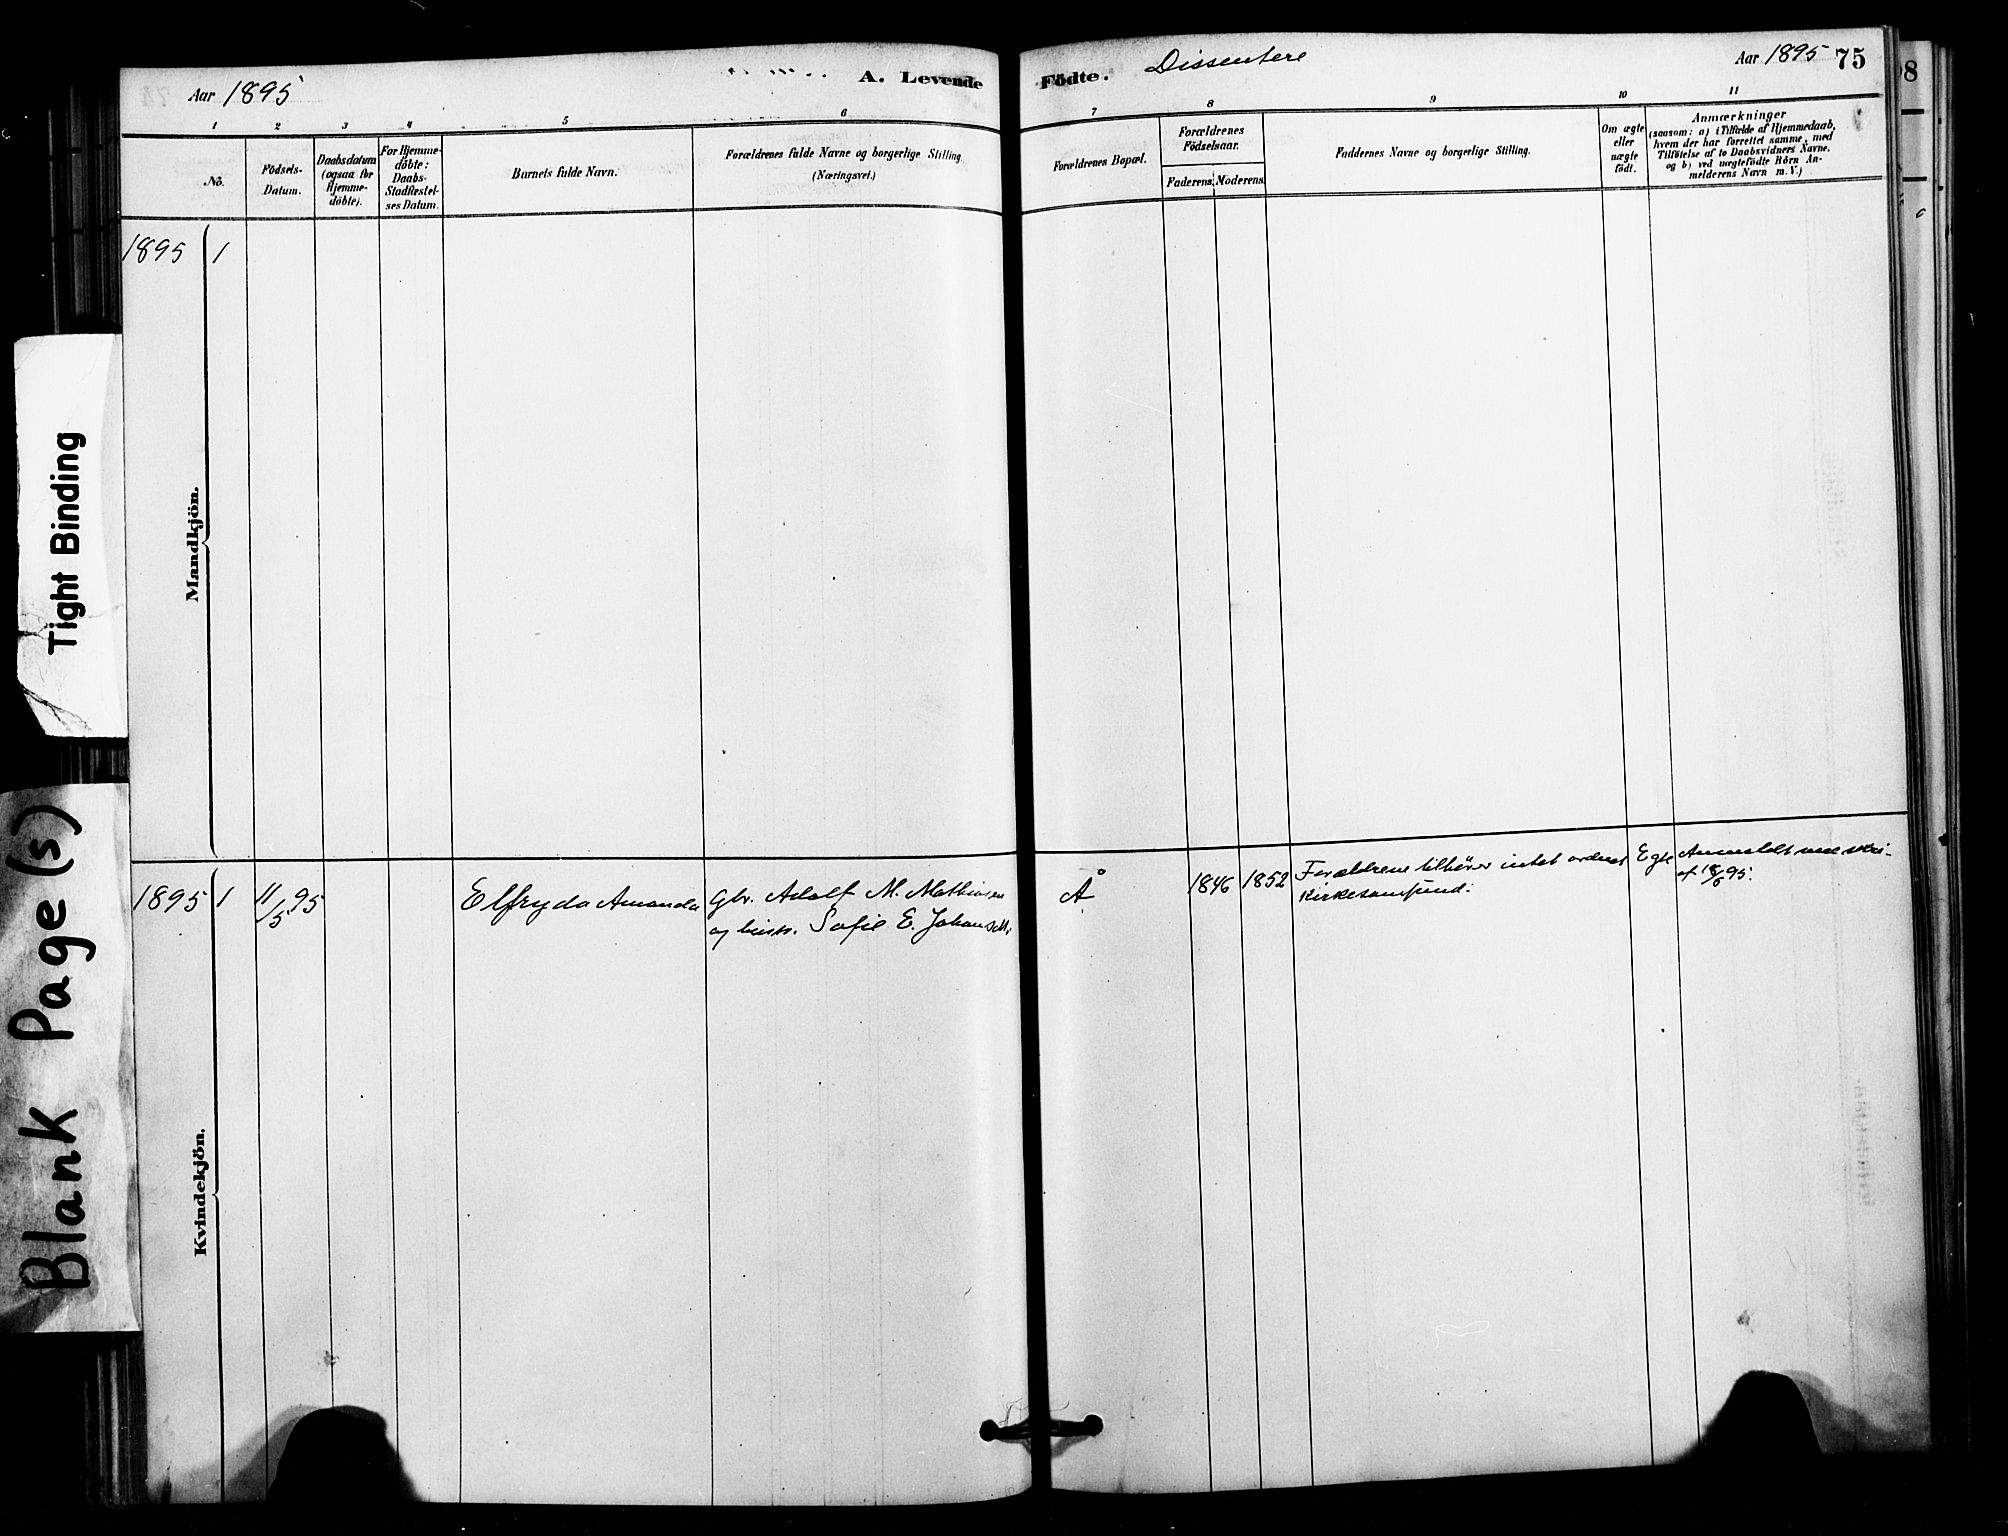 Aar 1895
A. Levende
Födte.
Dissentere
Aar 1895 75
98
1 2 3 4 5 6 7 8 9 10 11
No.
Födsels-
Datum.
Daabsdatum
(ogsaa for
Hjemme-
döbte).
For Hjemme-
döbte:
Daabs-
Stadfæstel-
ses Datum.
Barnets fulde Navn.
Forældrenes fulde Navne og borgerlige Stilling
(Næringsvei.)
Forældrenes Bopæl.
Forældrenes
Födselsaar.
Faderens. Moderens.
Faddernes Navne og borgerlige Stilling.
Om ægte
eller
uægte
födt.
Anmærkninger
(saasom: a) i Tilfælde af Hjemmedaab,
hvem der har forrettet samme, med
Tilföielse af to Daabsvidners Navne,
og b) ved uægtefödte Börn An-
melderens Navn m. V.)
1895 1
Mandkjön.
Tight Binding
Blank Page(s)
1895 1 11/5 95 Elfryda Amanda
Gbr. Adolf M. Mathiasen
og hustr. Sofie E. Johansdtr.
Å
1846 1852
Forældrene tilhører intet ordnet
Kirkesamfund.
Egte
Anmeldt ved skri-
af 18/6 95.
Kvindekjön.